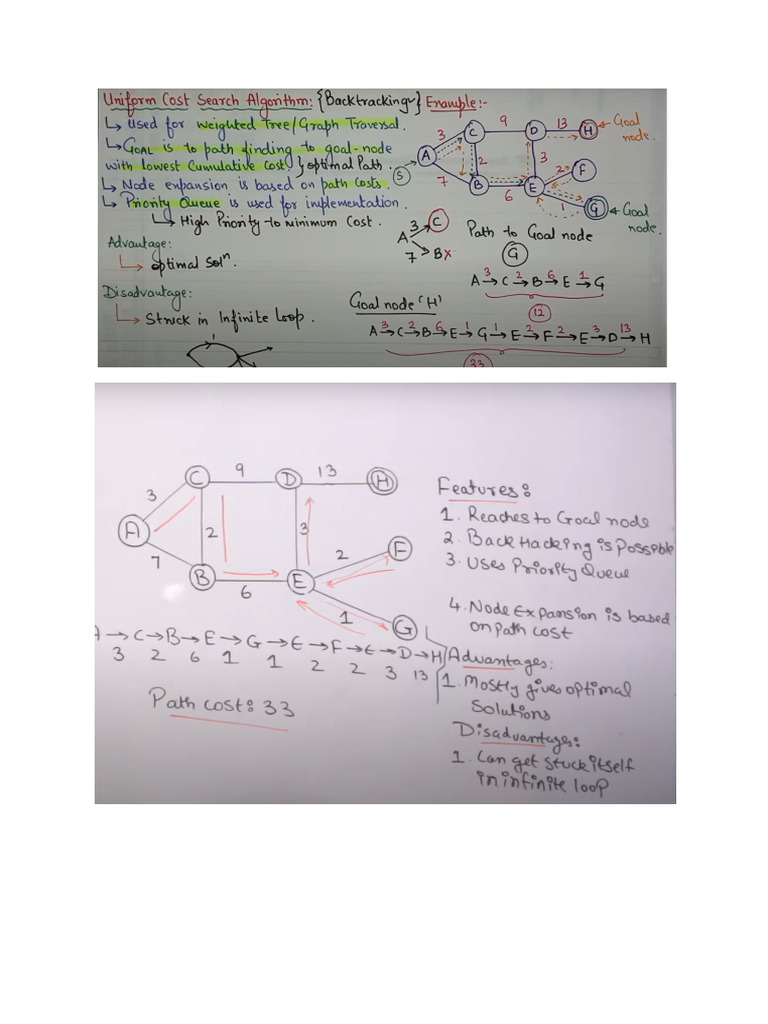 Uniform Cost Search Algorithm: {Backtracking✓} Example:-
↳ Used for weighted Tree/Graph Traversal.
↳ GOAL is to path finding to goal-node
with lowest Cumulative Cost. } optimal Path.
↳ Node expansion is based on path costs.
↳ Priority Queue is used for implementation.
↳ High Priority to minimum Cost.
Advantage:
↳ optimal Solⁿ.
Disadvantage:
↳ Struck in Infinite Loop.
9 13
3 C D H ← Goal
node.
A 2 3 2 F
S 7 B 6 E 1 G ← Goal
node.
A 3 C
7 B x
Path to Goal node
G
A 3→ C 2→ B 6→ E 1→ G
12
Goal node 'H'
A 3→ C 2→ B 6→ E 1→ G 1→ E 2→ F 2→ E 3→ D 13→ H
33
C 9 D 13 H
3
A 2 3 2 F
7
B 6 E 1 G
A → C → B → E → G → E → F → E → D → H
3 2 6 1 1 2 2 3 13
Path cost: 33
Features:
1. Reaches to Goal node
2. Back Hacking is Possible
3. Uses Priority Queue
4. Node Expansion is based
on path cost
Advantages:
1. Mostly gives optimal
Solutions
Disadvantages:
1. Can get stuck itself
in infinite loop